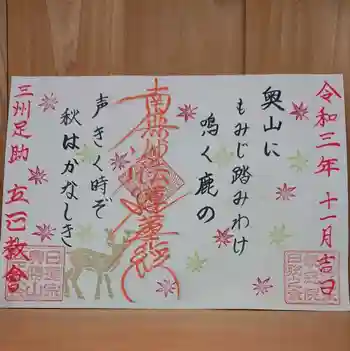 令和三年 十一月 吉日
奥山に
もみじ踏みわけ
鳴く鹿の
南無妙法蓮華経
声きく時ぞ
秋はかなしき
三州足助 立正教會